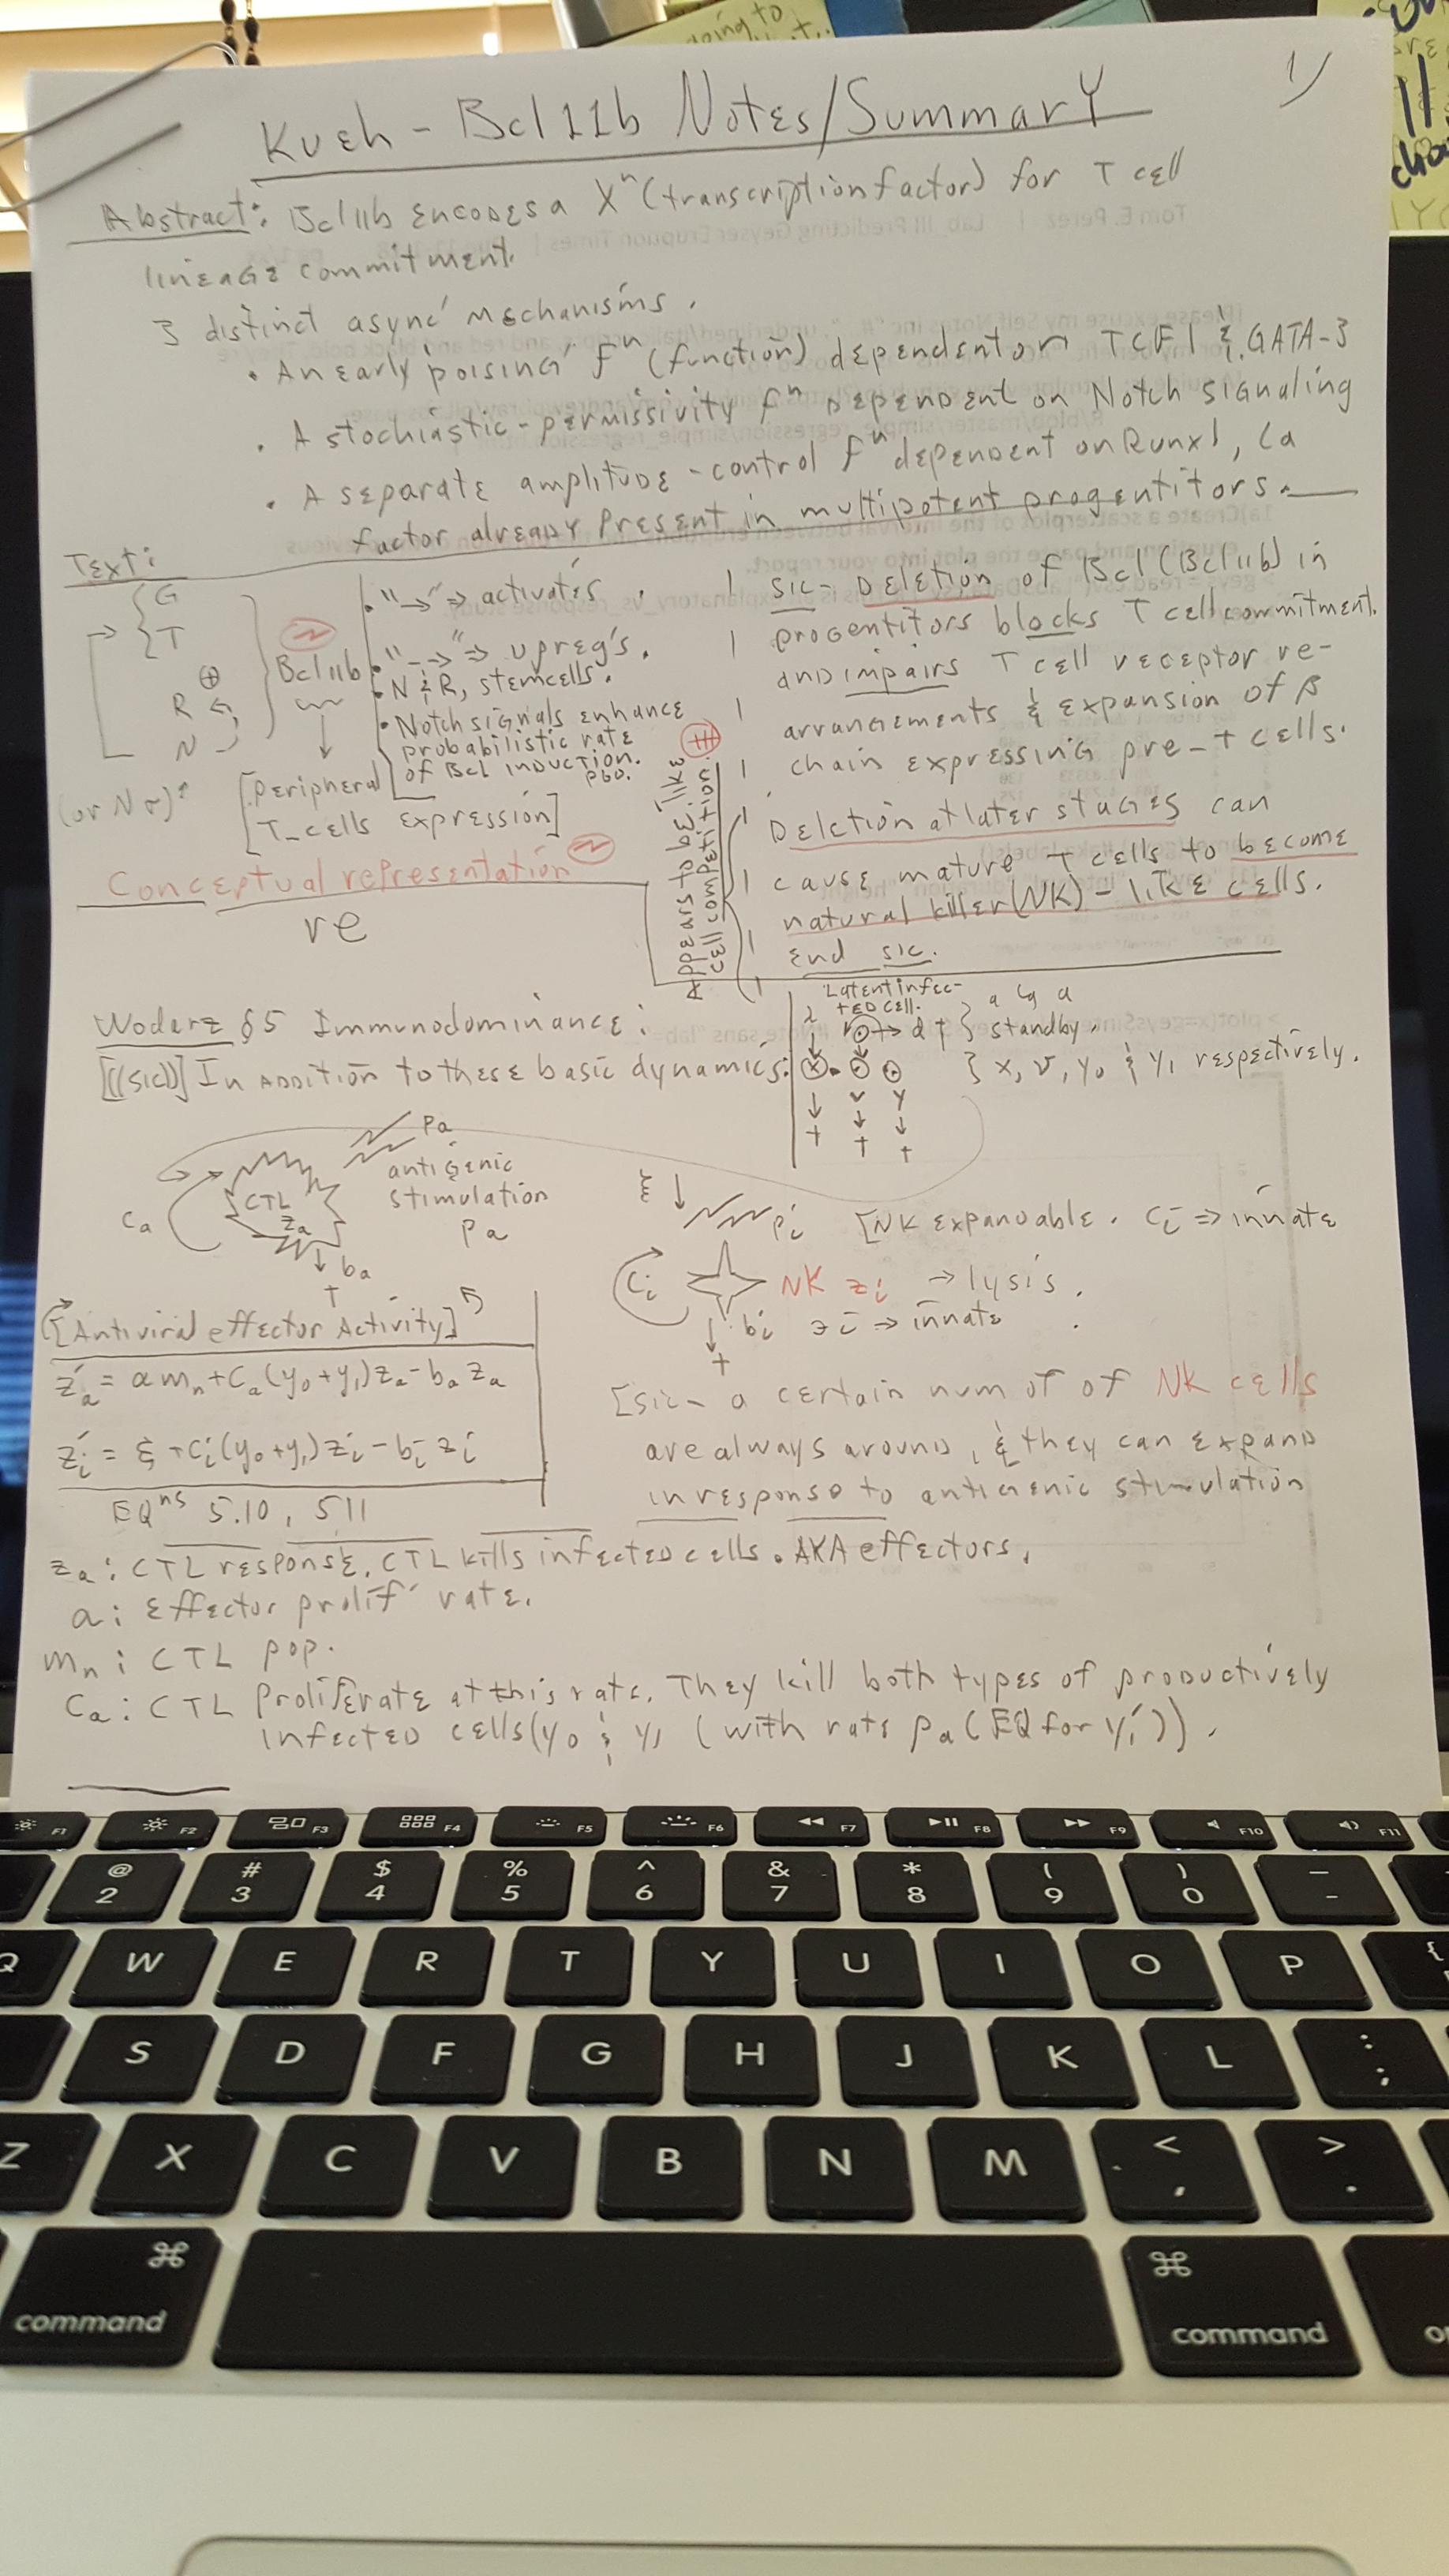 Kueh - Bcl11b Notes/Summary
1/
Abstract: Bcl11b encodes a Xⁿ (transcription factor) for T cell
lineage commitment.
3 distinct async' mechanisms.
• An early poising' fⁿ (function) dependent on TCF1 & GATA-3
• A stochiastic-permissivity fⁿ dependent on Notch signaling
• A separate amplitude-control fⁿ dependent on Runx1, (a
factor already present in multipotent progentitors.
Text:
G
T
R
N
(or N
Bcl11b
[Peripheral
T-cells expression]
• "→" ⇒ activates.
• "-→" ⇒ upreg's.
• N & R, stemcells.
• Notch signals enhance
probabilistic rate
of Bcl induction.
Conceptual representation
re
Appears to be like
cell competition.
sic- Deletion of Bcl (Bcl11b) in
progentitors blocks T cell commitment.
and impairs T cell receptor re-
arrangements & expansion of β
chain expressing pre-T cells.
Deletion at later stages can
cause mature T cells to become
natural killer (NK)-like cells.
end sic.
Wodarz §5 Immunodominance:
[((sic))] In addition to these basic dynamics:
Latent infec-
ted cell.
λ
d †
a
standby.
x
v
y
† † †
} x, v, y₀ & y₁ respectively.
Pa
antigenic
stimulation
Pa
CTL
za
ca
ba
†
ξ
pi
[NK expandable. ci ⇒ innate
ci
NK zi → lysis.
bi zi ⇒ innate
†
[Antiviral effector Activity]
za' = a mn + ca(y₀+y₁)za - ba za
zi' = ξ + ci(y₀+y₁)zi - bi zi
EQⁿˢ 5.10, 5.11
[sic- a certain num of of NK cells
are always around, & they can expand
in response to antigenic stimulation
za: CTL response. CTL kills infected cells. AKA effectors.
a: Effector prolif' rate.
mn: CTL pop.
ca: CTL Proliferate at this rate. They kill both types of productively
infected cells (y₀ & y₁ (with rate pa (EQ for y₁')).
F1 F2 F3 F4 F5 F6 F7 F8 F9 F10 F11
@ # $ % ^ & * ( ) —
2 3 4 5 6 7 8 9 0 -
Q W E R T Y U I O P {
S D F G H J K L : ;
Z X C V B N M < , > .
⌘ ⌘
command command